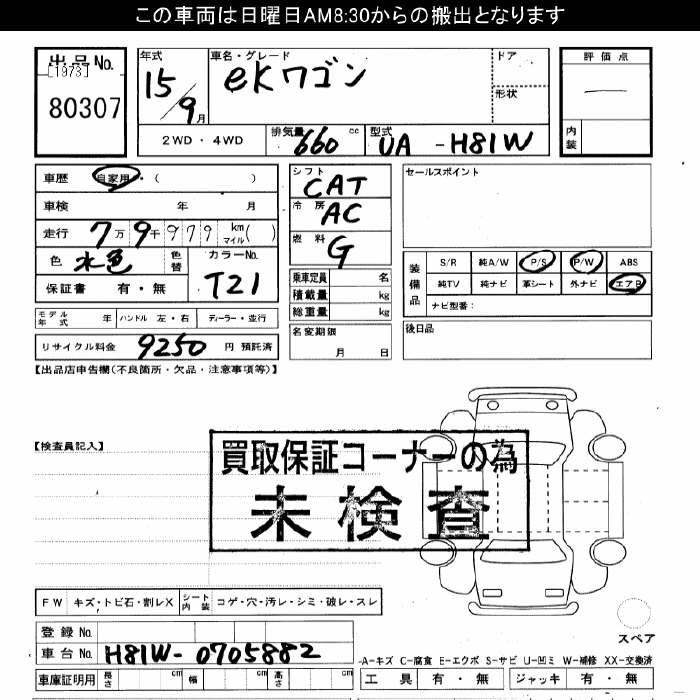 この車両は日曜日AM8:30からの搬出となります
出品No.
[1973]
80307
年式
15/9月
車名・グレード
eKワゴン
ドア
形状
評価点
内装
2WD・4WD
排気量
660 cc
型式
UA-H81W
車歴 自家用・( )
車検 年 月
走行 7万9千979 km マイル( )
色 水色 色替
カラーNo.
T21
保証書 有・無
シフト
CAT
冷房
AC
燃料
G
乗車定員 名
積載量 kg
総重量 kg
セールスポイント
装備品
S/R 純A/W P/S P/W ABS
純TV 純ナビ 革シート 外ナビ エアB
ナビ型番:
モデル年式 年 ハンドル 左・右 ディーラー・並行
名変期限
月 日
後日品
リサイクル料金 9250 円 預託済
【出品店申告欄(不良箇所・欠品・注意事項等)】
【検査員記入】
買取保証コーナーの為
未検査
FW キズ・トビ石・割レX シート内装 コゲ・穴・汚レ・シミ・破レ・スレ
スペア
登録No.
車台No. H81W-0705882
車庫証明用 長さ cm 幅 cm 高さ cm
-A-キズ C-腐食 E-エクボ S-サビ U-凹ミ W-補修 XX-交換済
工具 有・無 ジャッキ 有・無